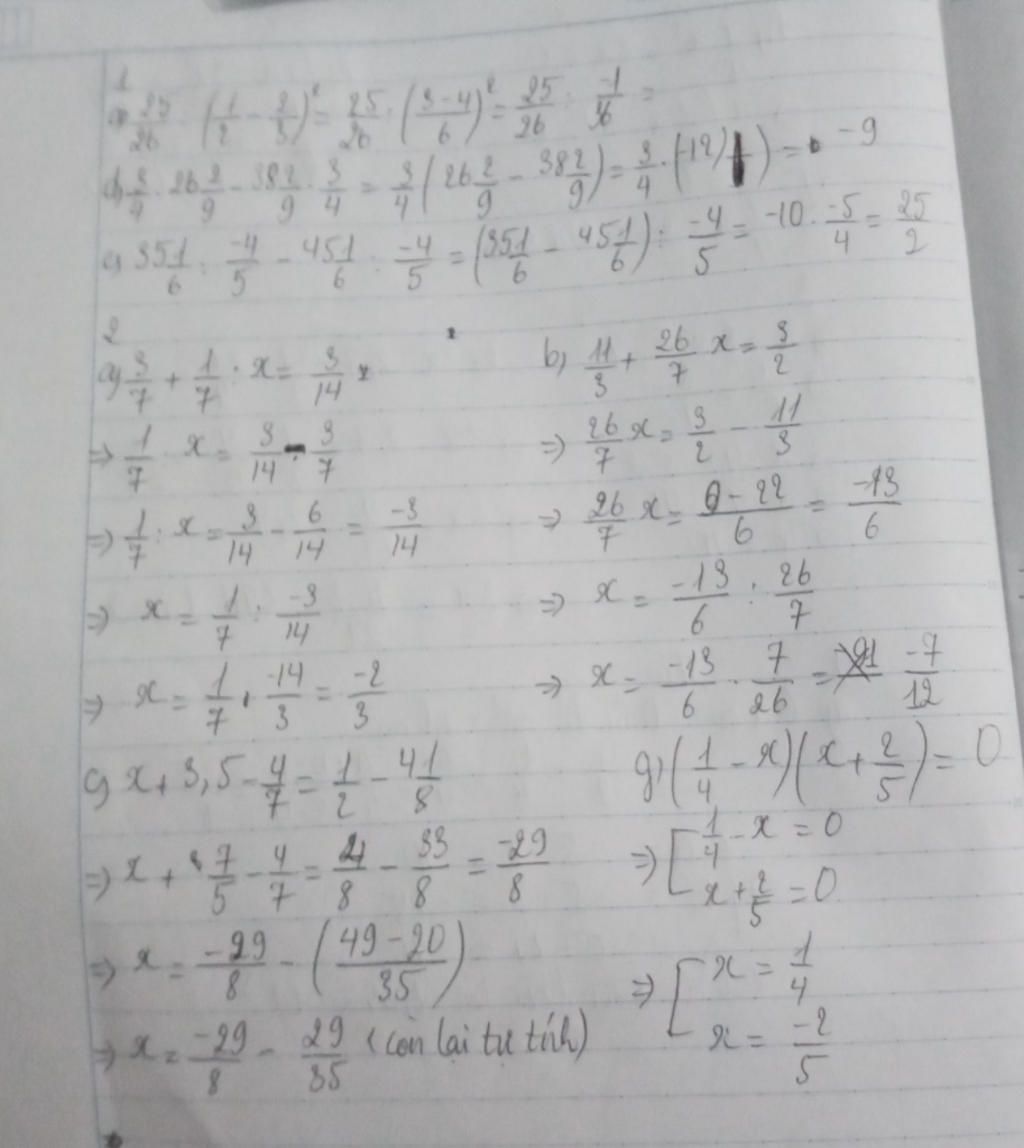 1
a) 25/26 · (1/2 - 2/3)² = 25/26 · (3-4/6)² = 25/26 : -1/36 =
d) 3/4 · 26 2/9 - 38 2/9 · 3/4 = 3/4 (26 2/9 - 38 2/9) = 3/4 · (-12) = -9
c) 35 1/6 : -4/5 - 45 1/6 : -4/5 = (35 1/6 - 45 1/6) : -4/5 = -10 · -5/4 = 25/2
2
a) 3/7 + 1/7 : x = 3/14
⇒ 1/7 x = 3/14 - 3/7
⇒ 1/7 : x = 3/14 - 6/14 = -3/14
⇒ x = 1/7 : -3/14
⇒ x = 1/7 · -14/3 = -2/3
b) 11/3 + 26/7 x = 3/2
⇒ 26/7 x = 3/2 - 11/3
⇒ 26/7 x = 9-22/6 = -13/6
⇒ x = -13/6 : 26/7
⇒ x = -13/6 · 7/26 = -7/12
c) x + 3,5 - 4/7 = 1/2 - 4 1/8
⇒ x + 7/5 - 4/7 = 4/8 - 33/8 = -29/8
⇒ x = -29/8 - (49-20/35)
⇒ x = -29/8 - 29/35 (còn lại tự tính)
g) (1/4 - x)(x + 2/5) = 0
⇒ [ 1/4 - x = 0
x + 2/5 = 0
⇒ [ x = 1/4
x = -2/5